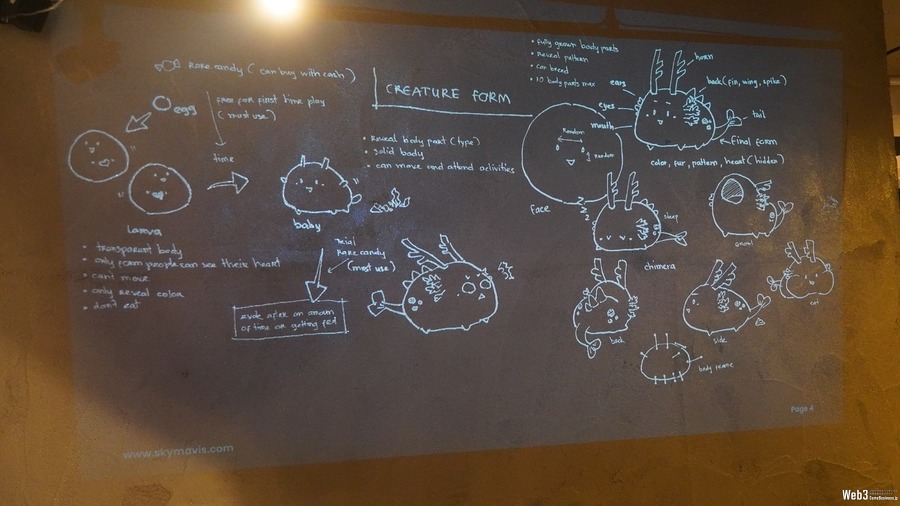 Rare candy (can buy with cash)
egg
Free for first time play
(must use)
time
Larva
• transparent body
• only form people can see their heart
• can't move
• only reveal color
• don't eat
CREATURE FORM
• Reveal body part (type)
• solid body
• can move and attend activities
baby
Trial
Rare candy
(must use)
evolve after an amount
of time or getting fed
• fully grown body parts
• Reveal pattern
• can breed
• 10 body parts max
horn
ears
back (fin, wing, spike)
eyes
mouth
tail
Final form
color, fur, pattern, heart (hidden)
Random
Random
Face
zzz
sleep
growl
chimera
eat
back
side
body frame
Page 4
www.skymavis.com
Web3
GameBusiness.jp